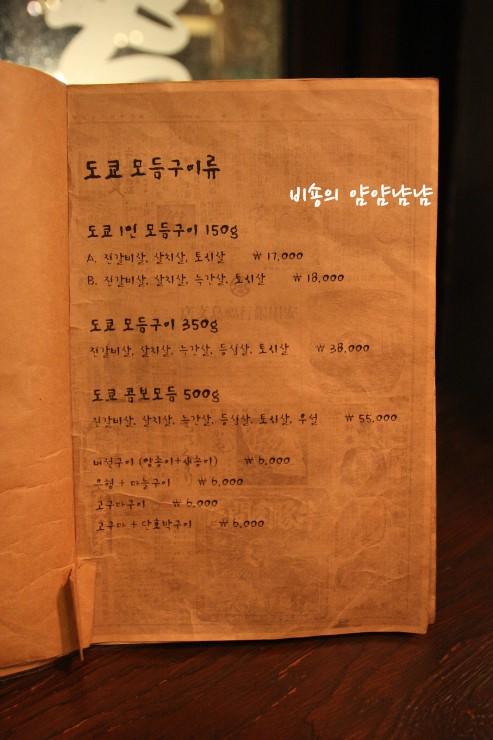 도쿄 모듬구이류
비숑의 얌얌냠냠
도쿄 1인 모듬구이 150g
A. 진갈비살, 살치살, 토시살 ₩ 17,000
B. 진갈비살, 살치살, 늑간살, 토시살 ₩ 18,000
도쿄 모듬구이 350g
진갈비살, 살치살, 늑간살, 등심살, 토시살 ₩ 38,000
도쿄 콤보모듬 500g
진갈비살, 살치살, 늑간살, 등심살, 토시살, 우설 ₩ 55,000
버섯구이 (양송이+새송이) ₩ 6,000
은행 + 마늘구이 ₩ 6,000
고구마구이 ₩ 6,000
고구마 + 단호박구이 ₩ 6,000